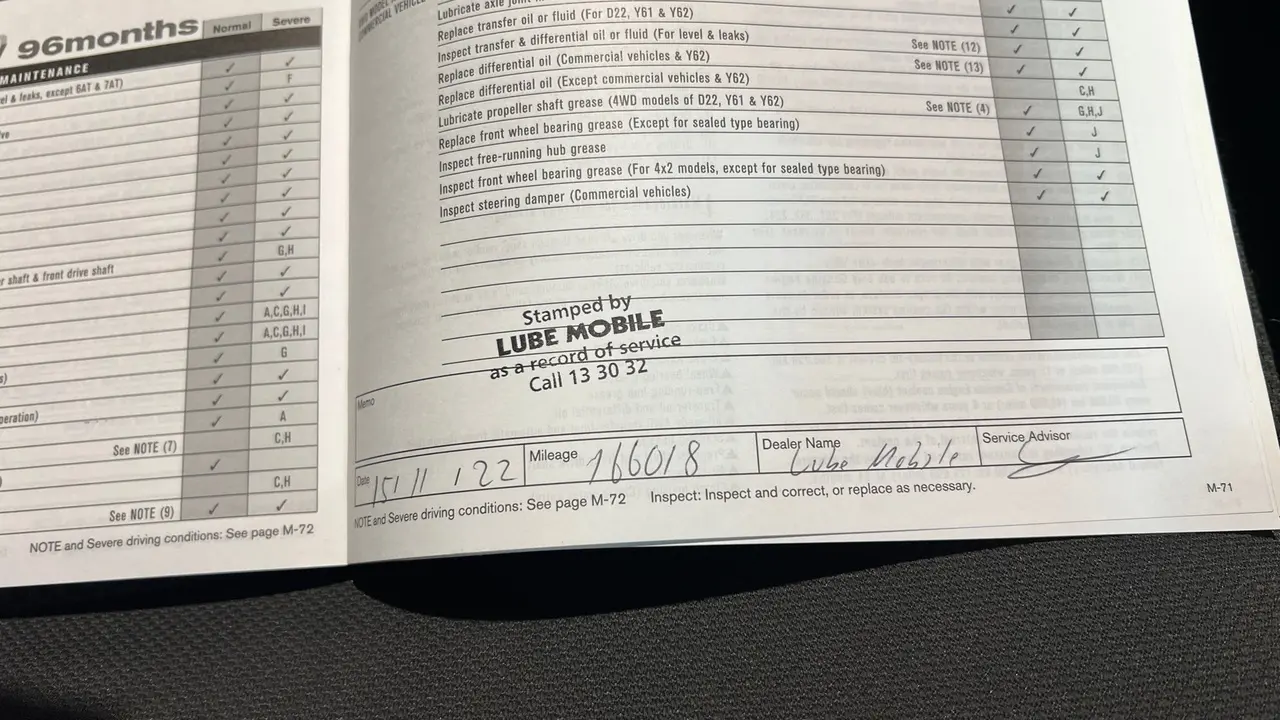 96months
Normal
Severe
MAINTENANCE
el & leaks, except 6AT & 7AT)
✓ ✓
✓ F
✓ ✓
✓ ✓
✓ ✓
✓ ✓
✓ ✓
✓ ✓
✓ ✓
✓ G,H
r shaft & front drive shaft
✓ ✓
✓ ✓
✓ A,C,G,H,I
✓ A,C,G,H,I
✓ G
✓ ✓
✓ ✓
peration)
✓ A
See NOTE (7) C,H
✓
C,H
See NOTE (9) ✓ ✓
NOTE and Severe driving conditions: See page M-72
COMMERCIAL VEHICLES
Lubricate axle joint
Replace transfer oil or fluid (For D22, Y61 & Y62) ✓ ✓
Inspect transfer & differential oil or fluid (For level & leaks) ✓ ✓
Replace differential oil (Commercial vehicles & Y62) See NOTE (12) ✓ ✓
Replace differential oil (Except commercial vehicles & Y62) See NOTE (13) ✓ ✓
Lubricate propeller shaft grease (4WD models of D22, Y61 & Y62) C,H
Replace front wheel bearing grease (Except for sealed type bearing) See NOTE (4) ✓ G,H,J
Inspect free-running hub grease ✓ J
Inspect front wheel bearing grease (For 4x2 models, except for sealed type bearing) ✓ J
Inspect steering damper (Commercial vehicles) ✓ ✓
✓ ✓
Stamped by
LUBE MOBILE
as a record of service
Call 13 30 32
Memo
Date 15/11/22
Mileage 166018
Dealer Name Lube Mobile
Service Advisor
NOTE and Severe driving conditions: See page M-72 Inspect: Inspect and correct, or replace as necessary.
M-71